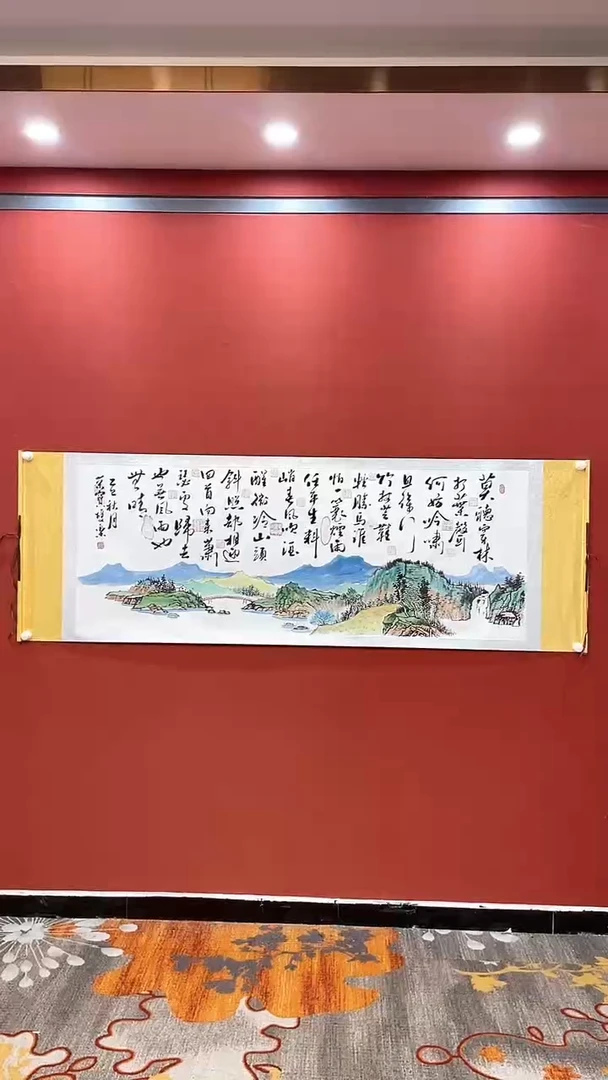 莫聽穿林
打葉聲
何妨吟嘯
且徐行
竹杖芒鞋
輕勝馬誰
怕一蓑煙雨
任平生料
峭春風吹酒
醒微冷山頭
斜照却相迎
回首向来蕭
瑟處歸去
也無風雨也
無晴
乙巳秋月